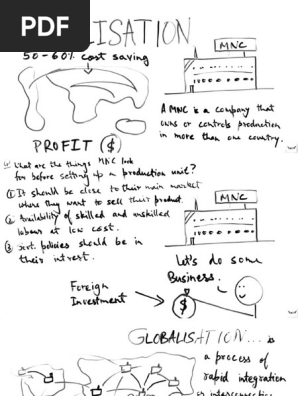 PDF
LISATION
50-60% cost saving
MNC
A MNC is a company that
owns or controls production
in more than one country.
PROFIT ($)
What are the things MNC look
for before setting up a production unit?
① It should be close to their main market
where they want to sell their product.
② Availability of skilled and unskilled
labour at low cost.
③ Govt. policies should be in
their intrest.
MNC
Let's do some
Business.
Foreign
Investment
$
GLOBALISATION... is
a process of
rapid integration
or interconnection